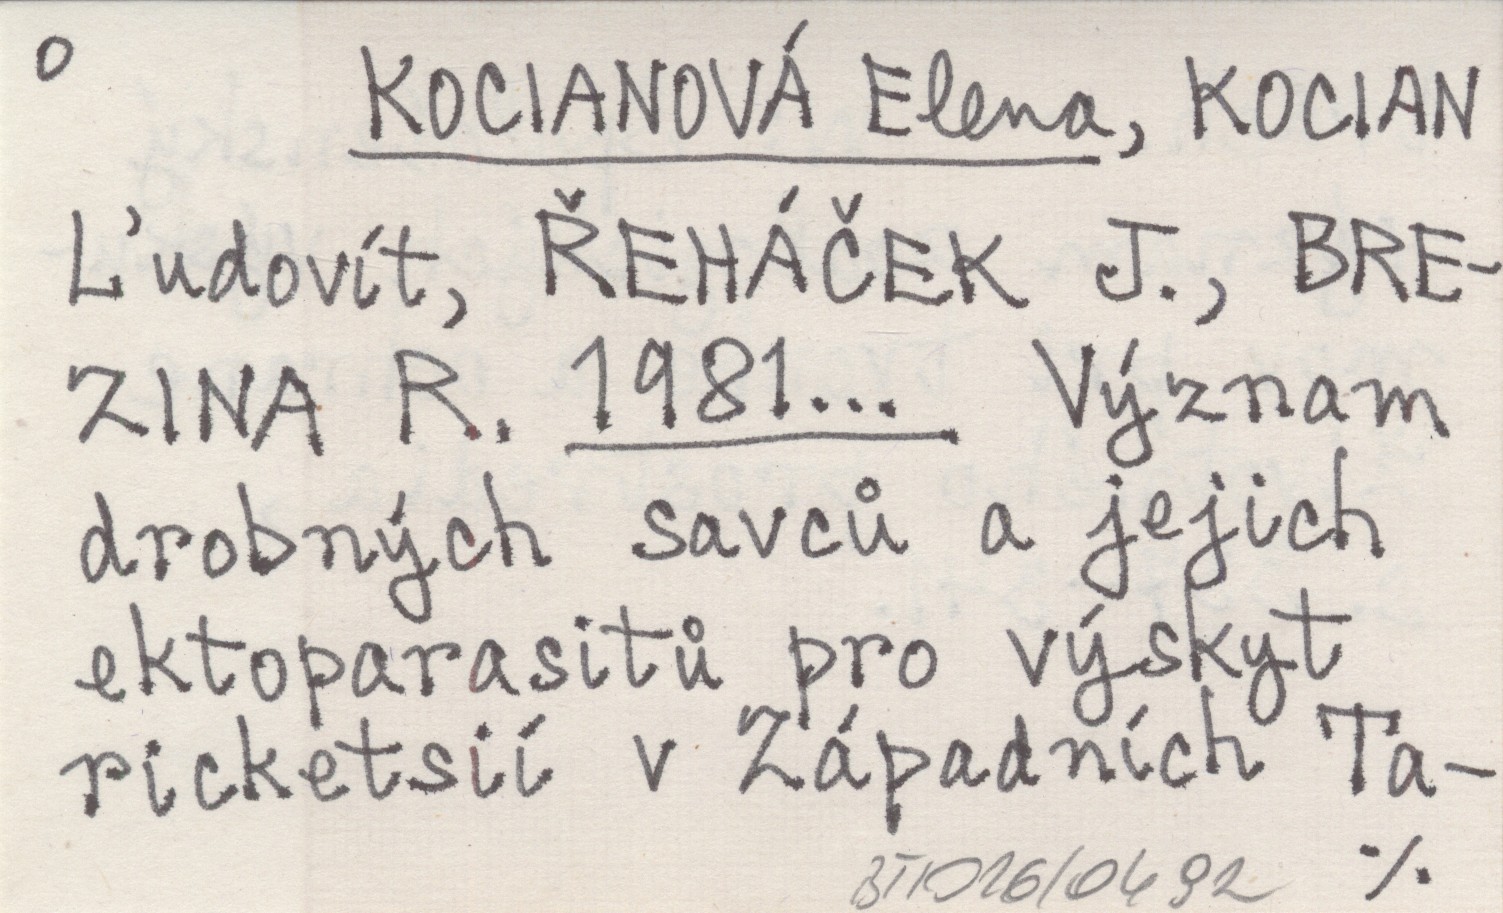 o KOCIANOVÁ Elena, KOCIAN
Ľudovít, ŘEHÁČEK J., BRE-
ZINA R. 1981... Význam
drobných savců a jejich
ektoparasitů pro výskyt
ricketsií v Západních Ta-
026/0492 ·/.